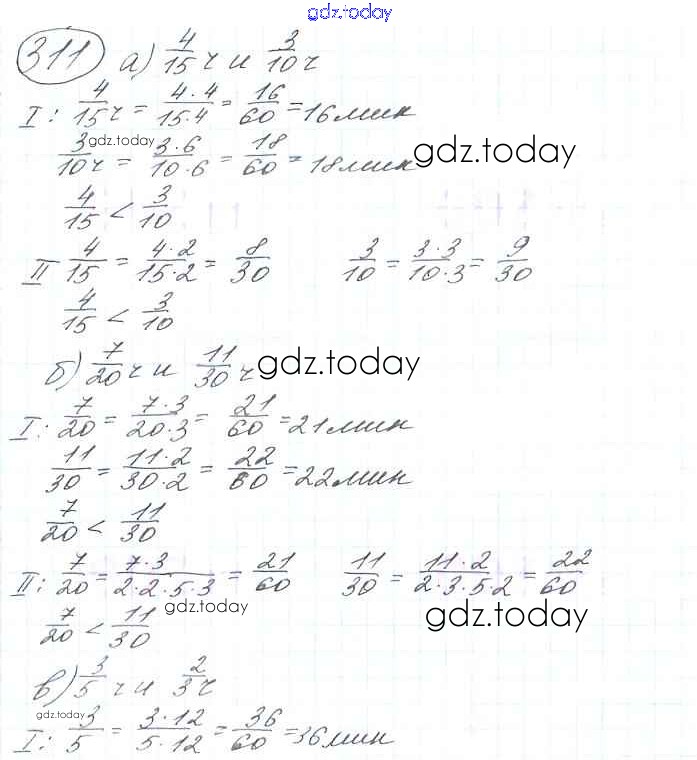 gdz.today
311 а) 4/15 ч и 3/10 ч
I: 4/15 ч = 4·4/15·4 = 16/60 = 16 мин
gdz.today
3/10 ч = 3·6/10·6 = 18/60 = 18 мин gdz.today
4/15 < 3/10
II 4/15 = 4·2/15·2 = 8/30 3/10 = 3·3/10·3 = 9/30
4/15 < 3/10
б) 7/20 ч и 11/30 ч gdz.today
I: 7/20 = 7·3/20·3 = 21/60 = 21 мин
11/30 = 11·2/30·2 = 22/60 = 22 мин
7/20 < 11/30
II: 7/20 = 7·3/2·2·5·3 = 21/60 11/30 = 11·2/2·3·5·2 = 22/60
gdz.today gdz.today
7/20 < 11/30
в) 3/5 ч и 2/3 ч
gdz.today
I: 3/5 = 3·12/5·12 = 36/60 = 36 мин